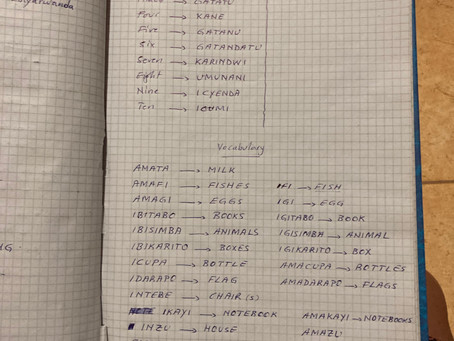 Kinyarwanda
Four → KANE
Five → GATANU
Six → GATANDATU
Seven → KARINDWI
Eight → UMUNANI
Nine → ICYENDA
Ten → ICUMI
Vocabulary
AMATA → MILK
AMAFI → FISHES IFI → FISH
AMAGI → EGGS IGI → EGG
IBITABO → BOOKS IGITABO → BOOK
IBISIMBA → ANIMALS IGISIMBA → ANIMAL
IBIKARITO → BOXES IGIKARITO → BOX
ICUPA → BOTTLE AMACUPA → BOTTLES
IDARAPO → FLAG AMADARAPO → FLAGS
INTEBE → CHAIR (S)
IKAYI → NOTEBOOK AMAKAYI → NOTEBOOKS
INZU → HOUSE AMAZU